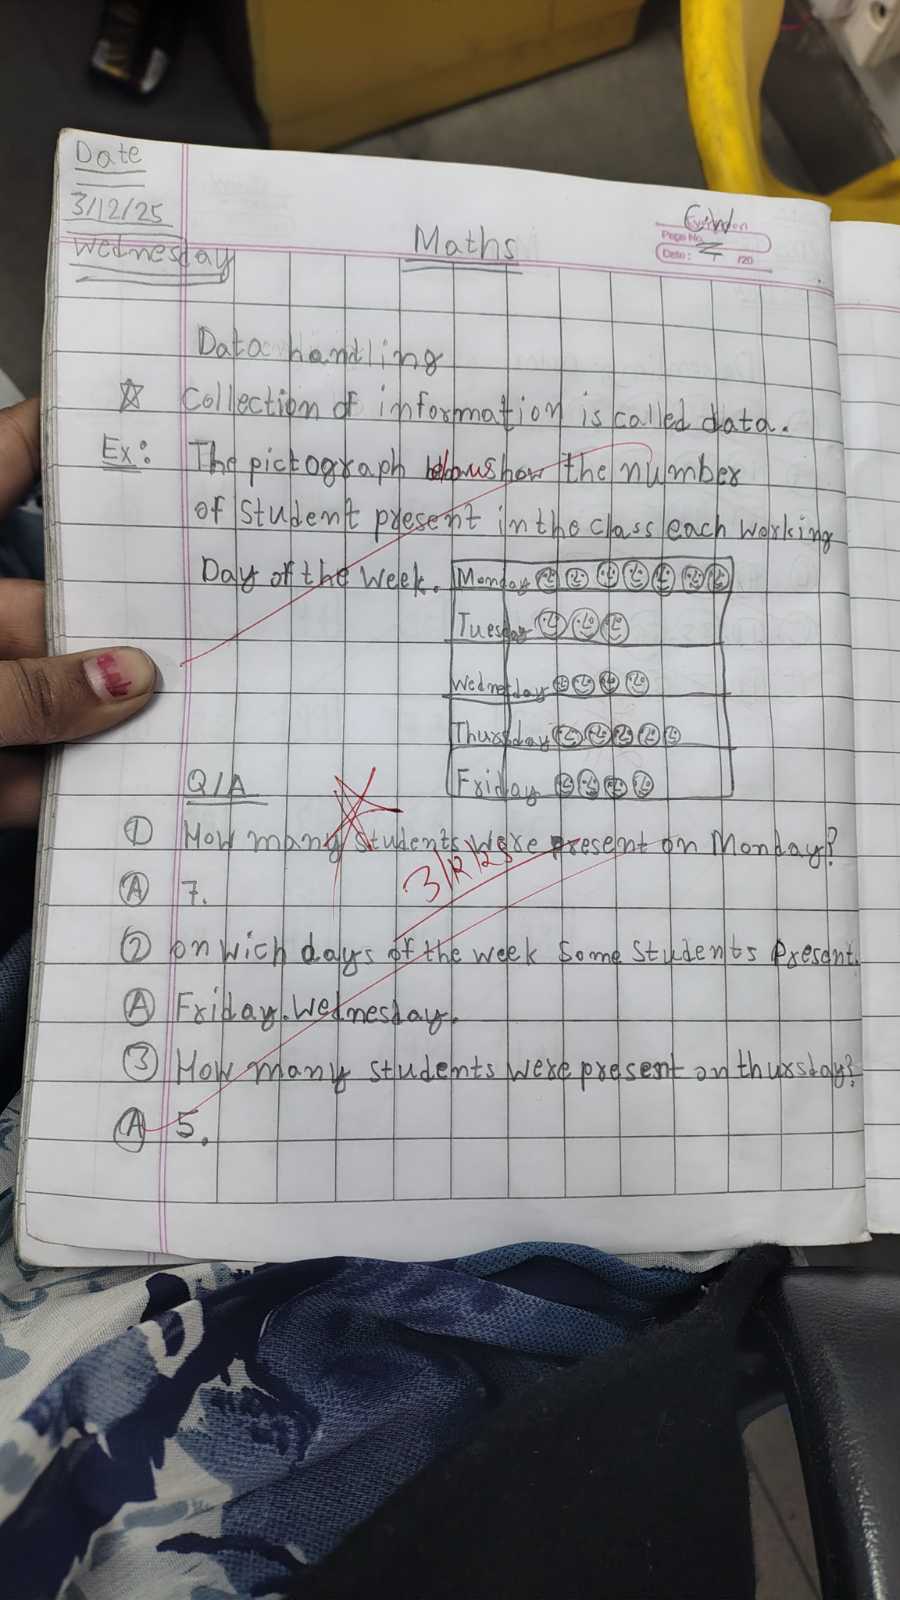 Date
3/12/25
Wednesday
C.W
Page No.
Date: /20
Maths
Data handling
☆ Collection of information is called data.
Ex: The pictograph show the number
of Student present in the class each working
Day of the week.
Monday
Tuesday
Wednesday
Thursday
Friday
Q/A
① How many students were present on Monday?
3/12/25
Ⓐ 7.
② on wich days of the week Some Students Presant.
Ⓐ Friday. Wednesday.
③ How many students were present on thursday?
Ⓐ 5.